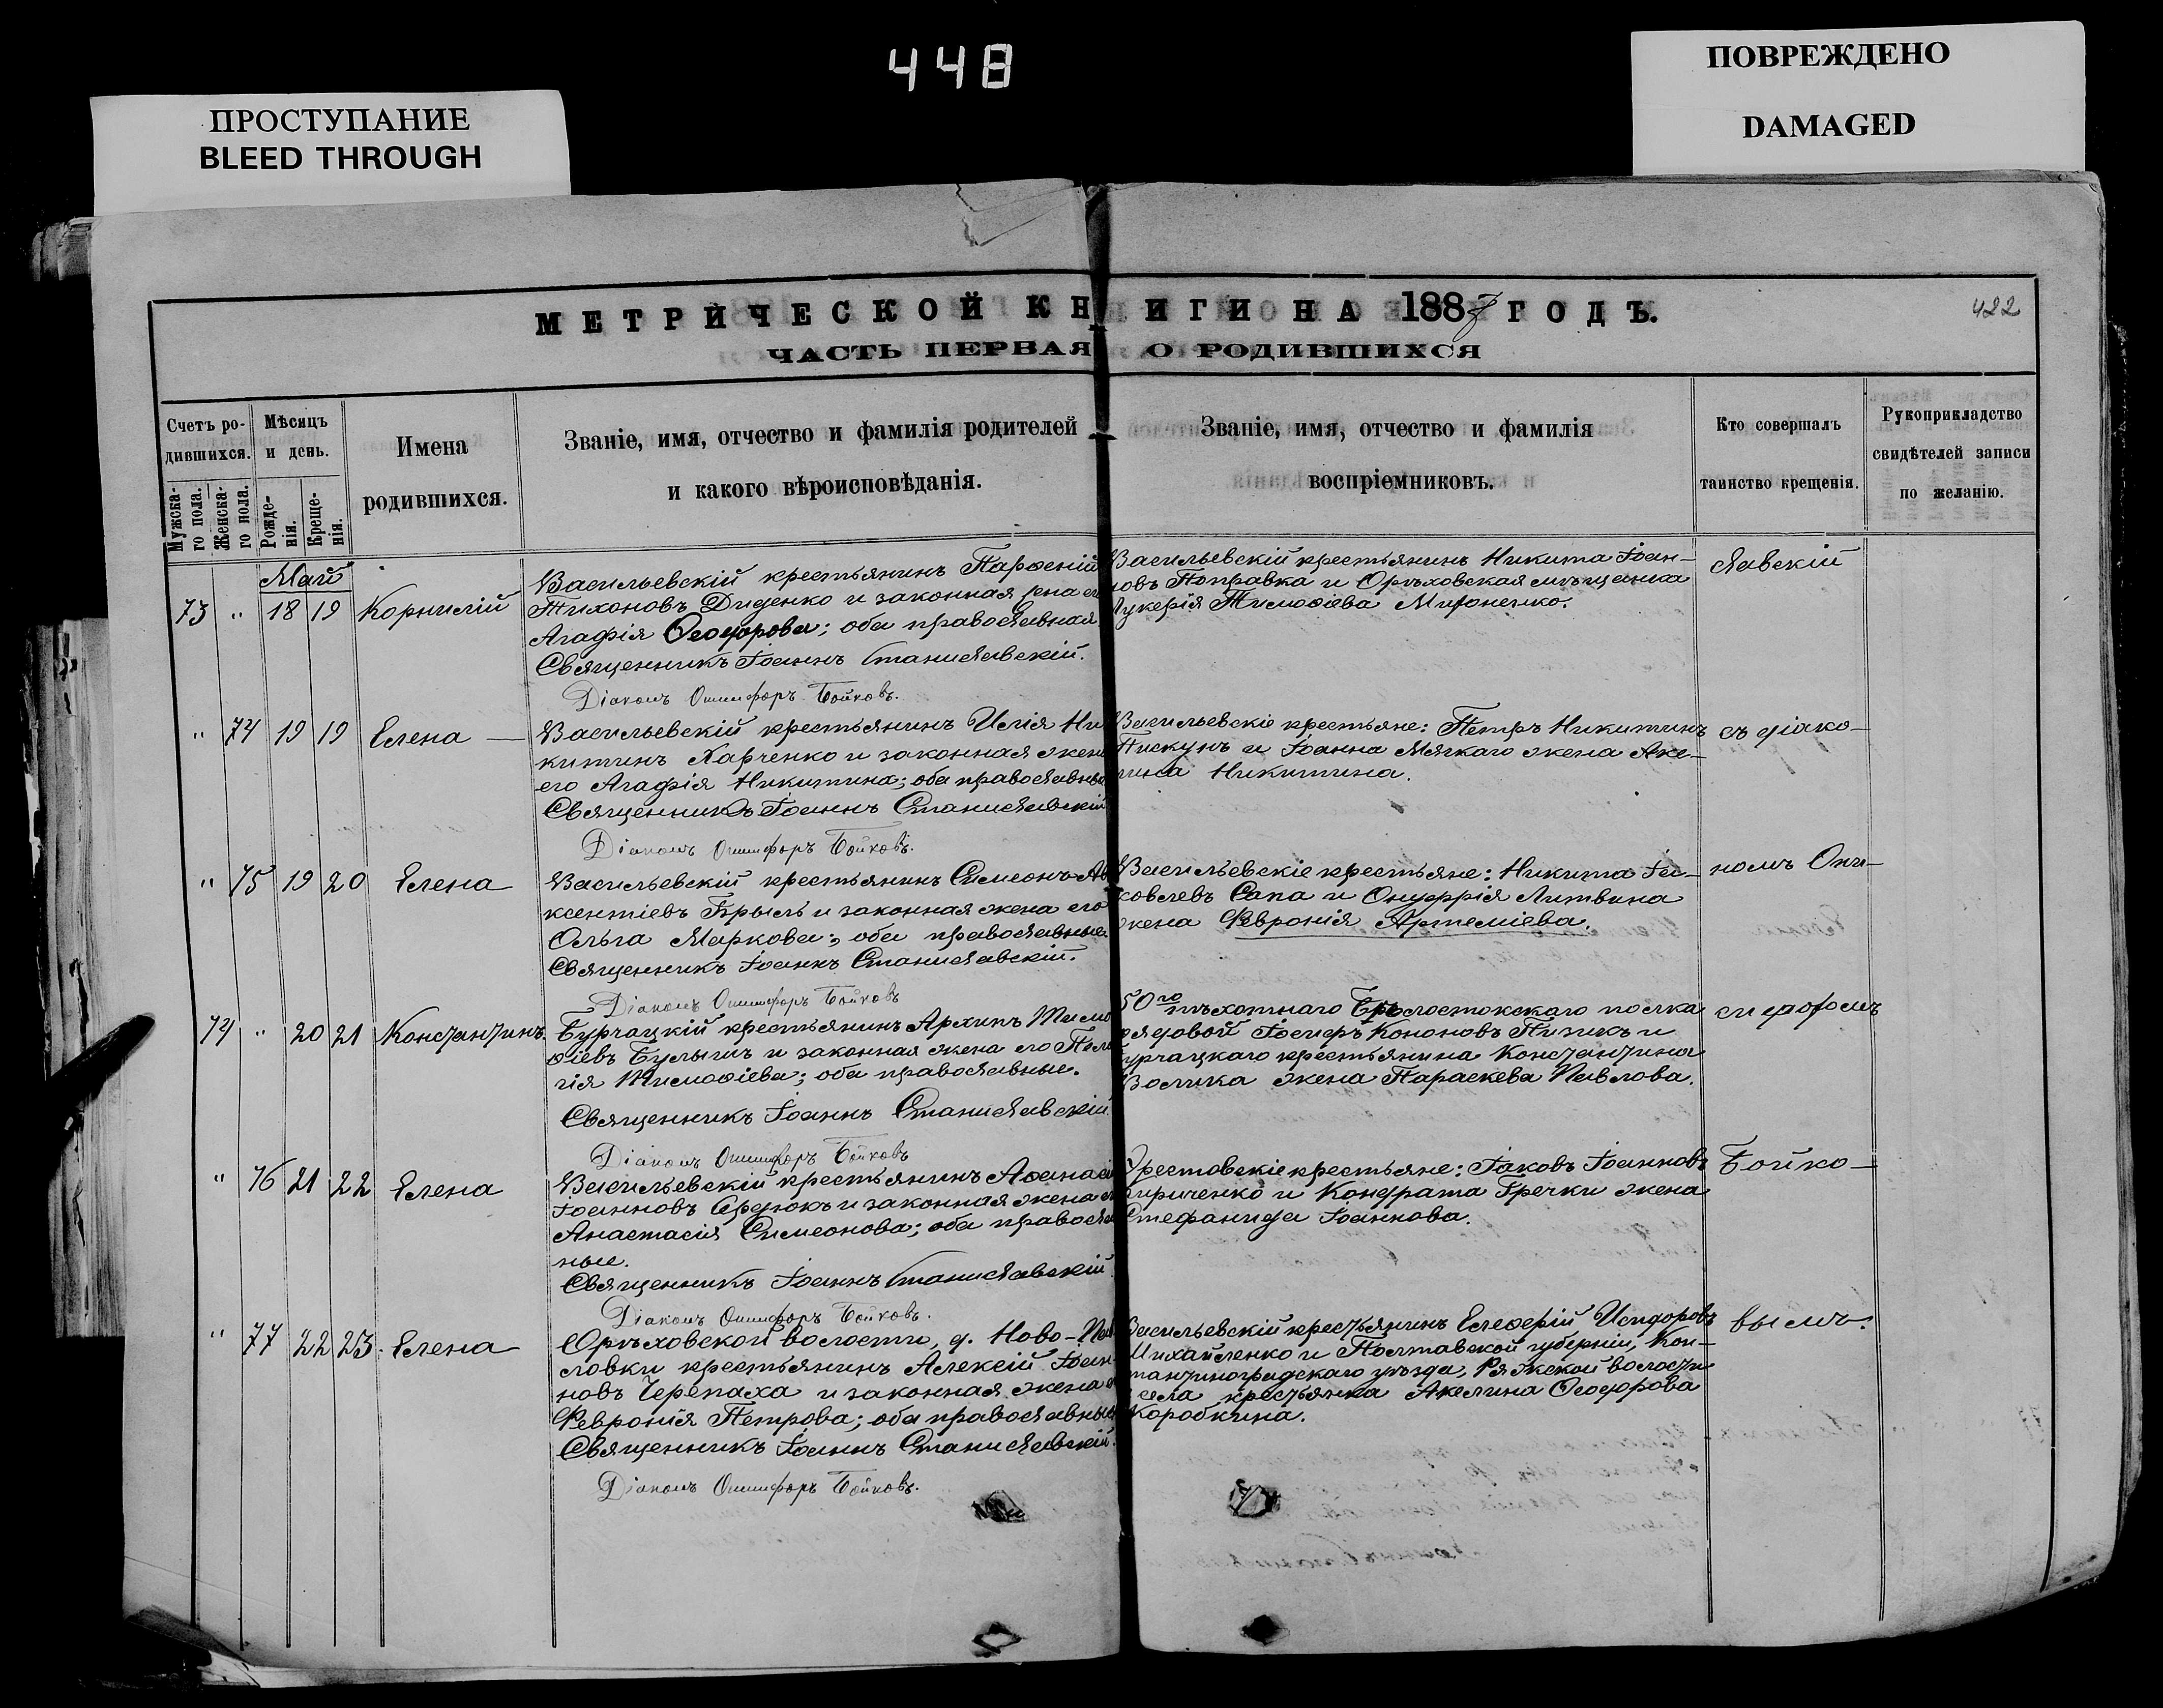 448
ПРОСТУПАНИЕ
BLEED THROUGH
ПОВРЕЖДЕНО
DAMAGED
422
МЕТРИЧЕСКОЙ КНИГИ НА 1887 ГОДЪ.
ЧАСТЬ ПЕРВАЯ О РОДИВШИХСЯ
Счетъ ро-
дившихся.
Мужска-
го пола.
Женска-
го пола.
Мѣсяцъ
и день.
Рожде-
нія.
Креще-
нія.
Имена
родившихся.
Званіе, имя, отчество и фамилія родителей
и какого вѣроисповѣданія.
Званіе, имя, отчество и фамилія
воспріемниковъ.
Кто совершалъ
таинство крещенія.
Рукоприкладство
свидѣтелей записи
по желанію.
Май
73 " 18 19 Корнилій
Васильевскій крестьянинъ Парѳеній
Тихоновъ Диденко и законная жена его
Агафія Ѳеодорова; оба православная.
Священникъ Іоаннъ Станиславскій.
Діаконъ Онисифоръ Бойковъ.
Васильевскій крестьянинъ Никита Іоан-
новъ Поправка и Орѣховская мѣщанка
Лукерія Тимоѳіева Мироненко.
лавскій
" 74 19 19 Елена —
Васильевскій крестьянинъ Илія Ни
китинъ Харченко и законная жена
его Агафія Никитина; оба православны
Священникъ Іоаннъ Станиславскій
Діаконъ Онисифоръ Бойковъ.
Васильевскіе крестьяне: Петръ Никитинъ
Пискунъ и Іоанна Мягкаго жена Аке-
лина Никитина.
съ діако-
" 75 19 20 Елена
Васильевскій крестьянинъ Симеонъ Ав
ксентіевъ Брыль и законная жена его
Ольга Маркова; оба православные.
Священникъ Іоаннъ Станиславскій.
Діаконъ Онисифоръ Бойковъ
Васильевскіе крестьяне: Никита Іа-
ковлевъ Сапа и Онуфрія Литвина
жена Февронія Артеміева.
номъ Они-
74 " 20 21 Константинъ
Бурчацкій крестьянинъ Архипъ Тимо
ѳіевъ Булышъ и законная жена его Пела
гія Тимоѳіева; оба православные.
Священникъ Іоаннъ Станиславскій
Діаконъ Онисифоръ Бойковъ
50го пѣхотнаго Бѣлостокскаго полка
рядовой Іосифъ Кононовъ Пизикъ и
Бурчацкаго крестьянина Константина
Волика жена Параскева Павлова.
сифоромъ
" 76 21 22 Елена
Васильевскій крестьянинъ Аѳанасій
Іоанновъ Сердюкъ и законная жена е
Анастасія Симеонова; оба правосла
ные.
Священникъ Іоаннъ Станиславскій
Діаконъ Онисифоръ Бойковъ.
крестьяне: Іаковъ Іоанновъ
Кириченко и Кондрата Гречки жена
Стефанида Іоаннова.
Бойко-
" 77 22 23. Елена
Орѣховской волости, д. Ново-Пав
ловки крестьянинъ Алексій Іоан-
новъ Черепаха и законная жена е
Февронія Петрова; оба православные
Священникъ Іоаннъ Станиславскій.
Діаконъ Онисифоръ Бойковъ.
Васильевскій крестьянинъ Елеѳерій Исидоровъ
Михайленко и Полтавской губерніи, Кон-
стантиноградскаго уѣзда, Ряжской волости
села крестьянка Акелина Ѳеодорова
Коробкина.
вымъ.